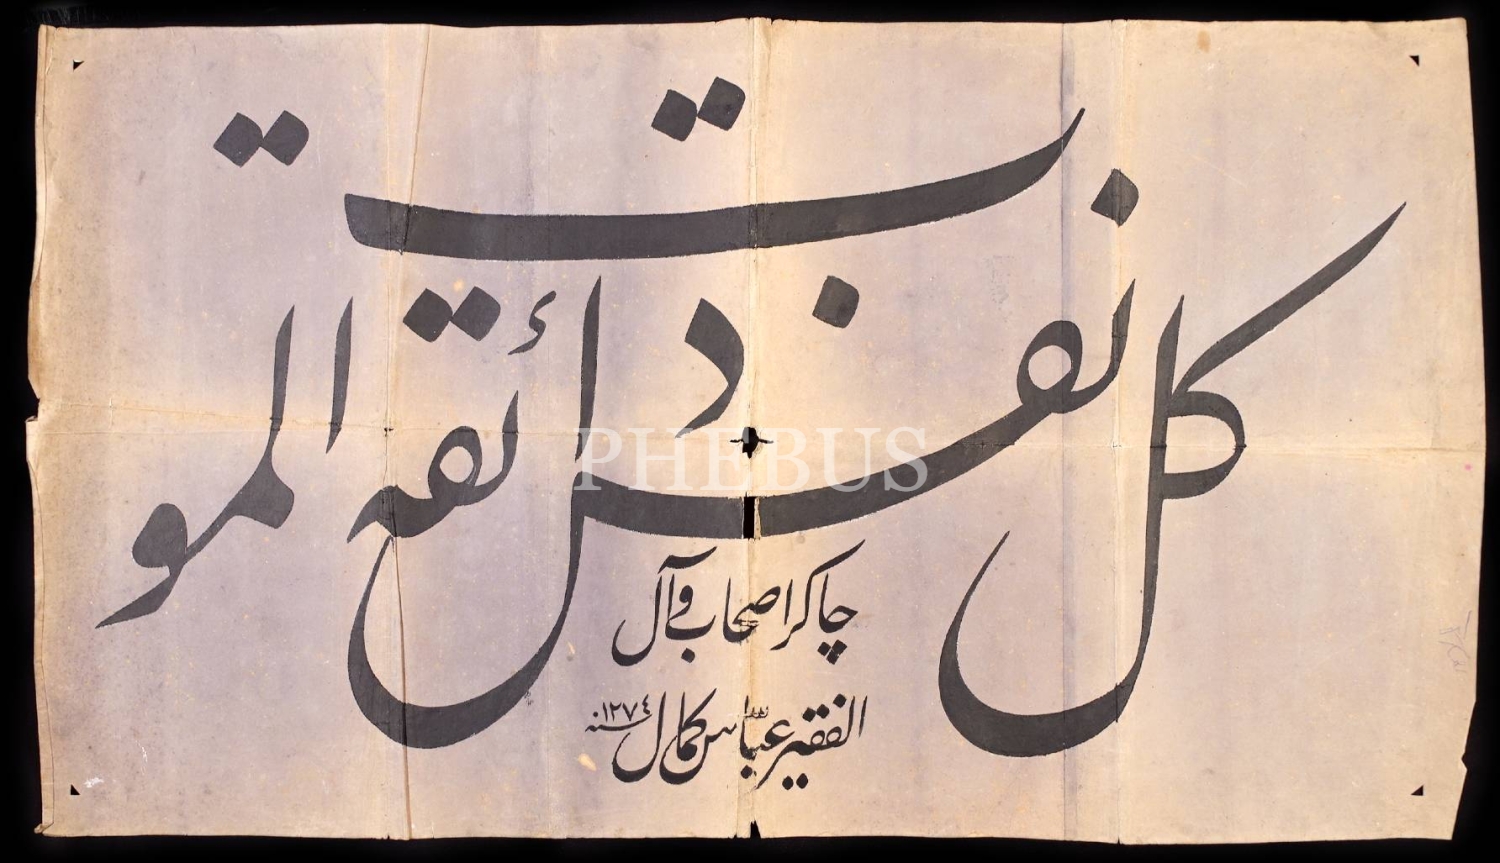 كل نفس ذائقة الموت
PHEBUS
چاكر اصحاب و آل
الفقير عباس كمال سنه ١٢٧٤